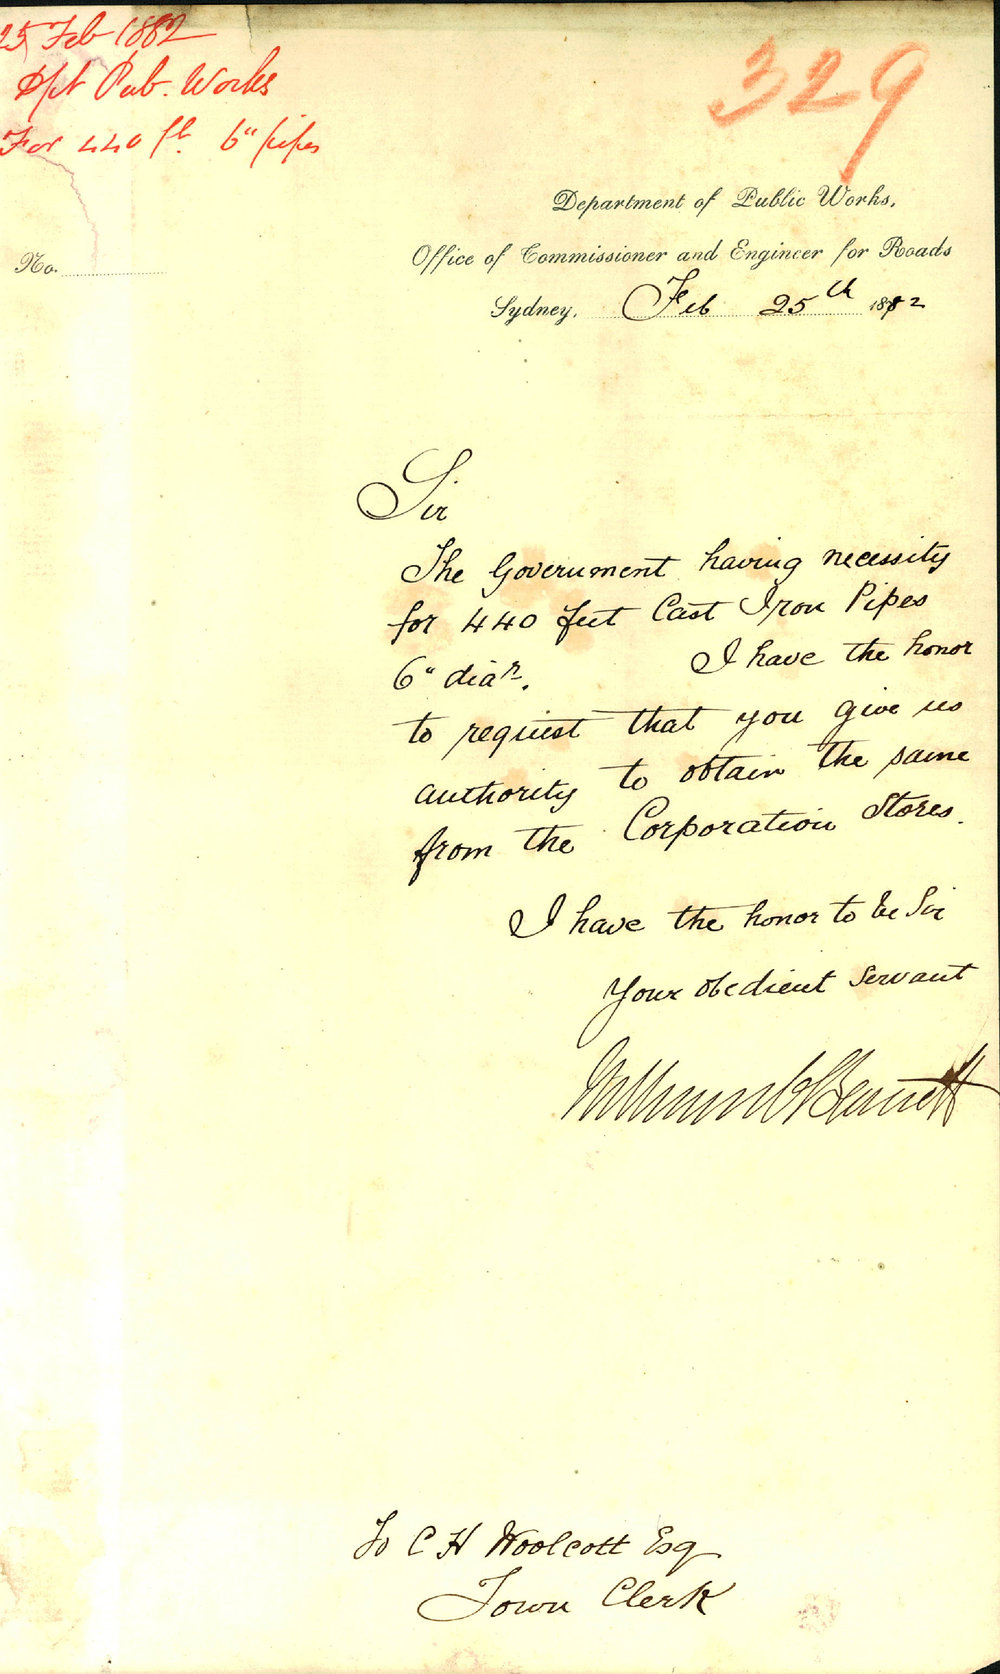 25 Feb 1882
Dpt Pub. Works
For 440 ft. 6" pipes
329
Department of Public Works,
Office of Commissioner and Engineer for Roads
No.
Sydney, Feb 25th 1882
Sir
The Government having necessity
for 440 feet Cast Iron Pipes
6" diar. I have the honor
to request that you give us
authority to obtain the same
from the Corporation Stores.
I have the honor to be Sir
Your obedient servant
William C Bennett
To C H Woolcott Esq
Town Clerk